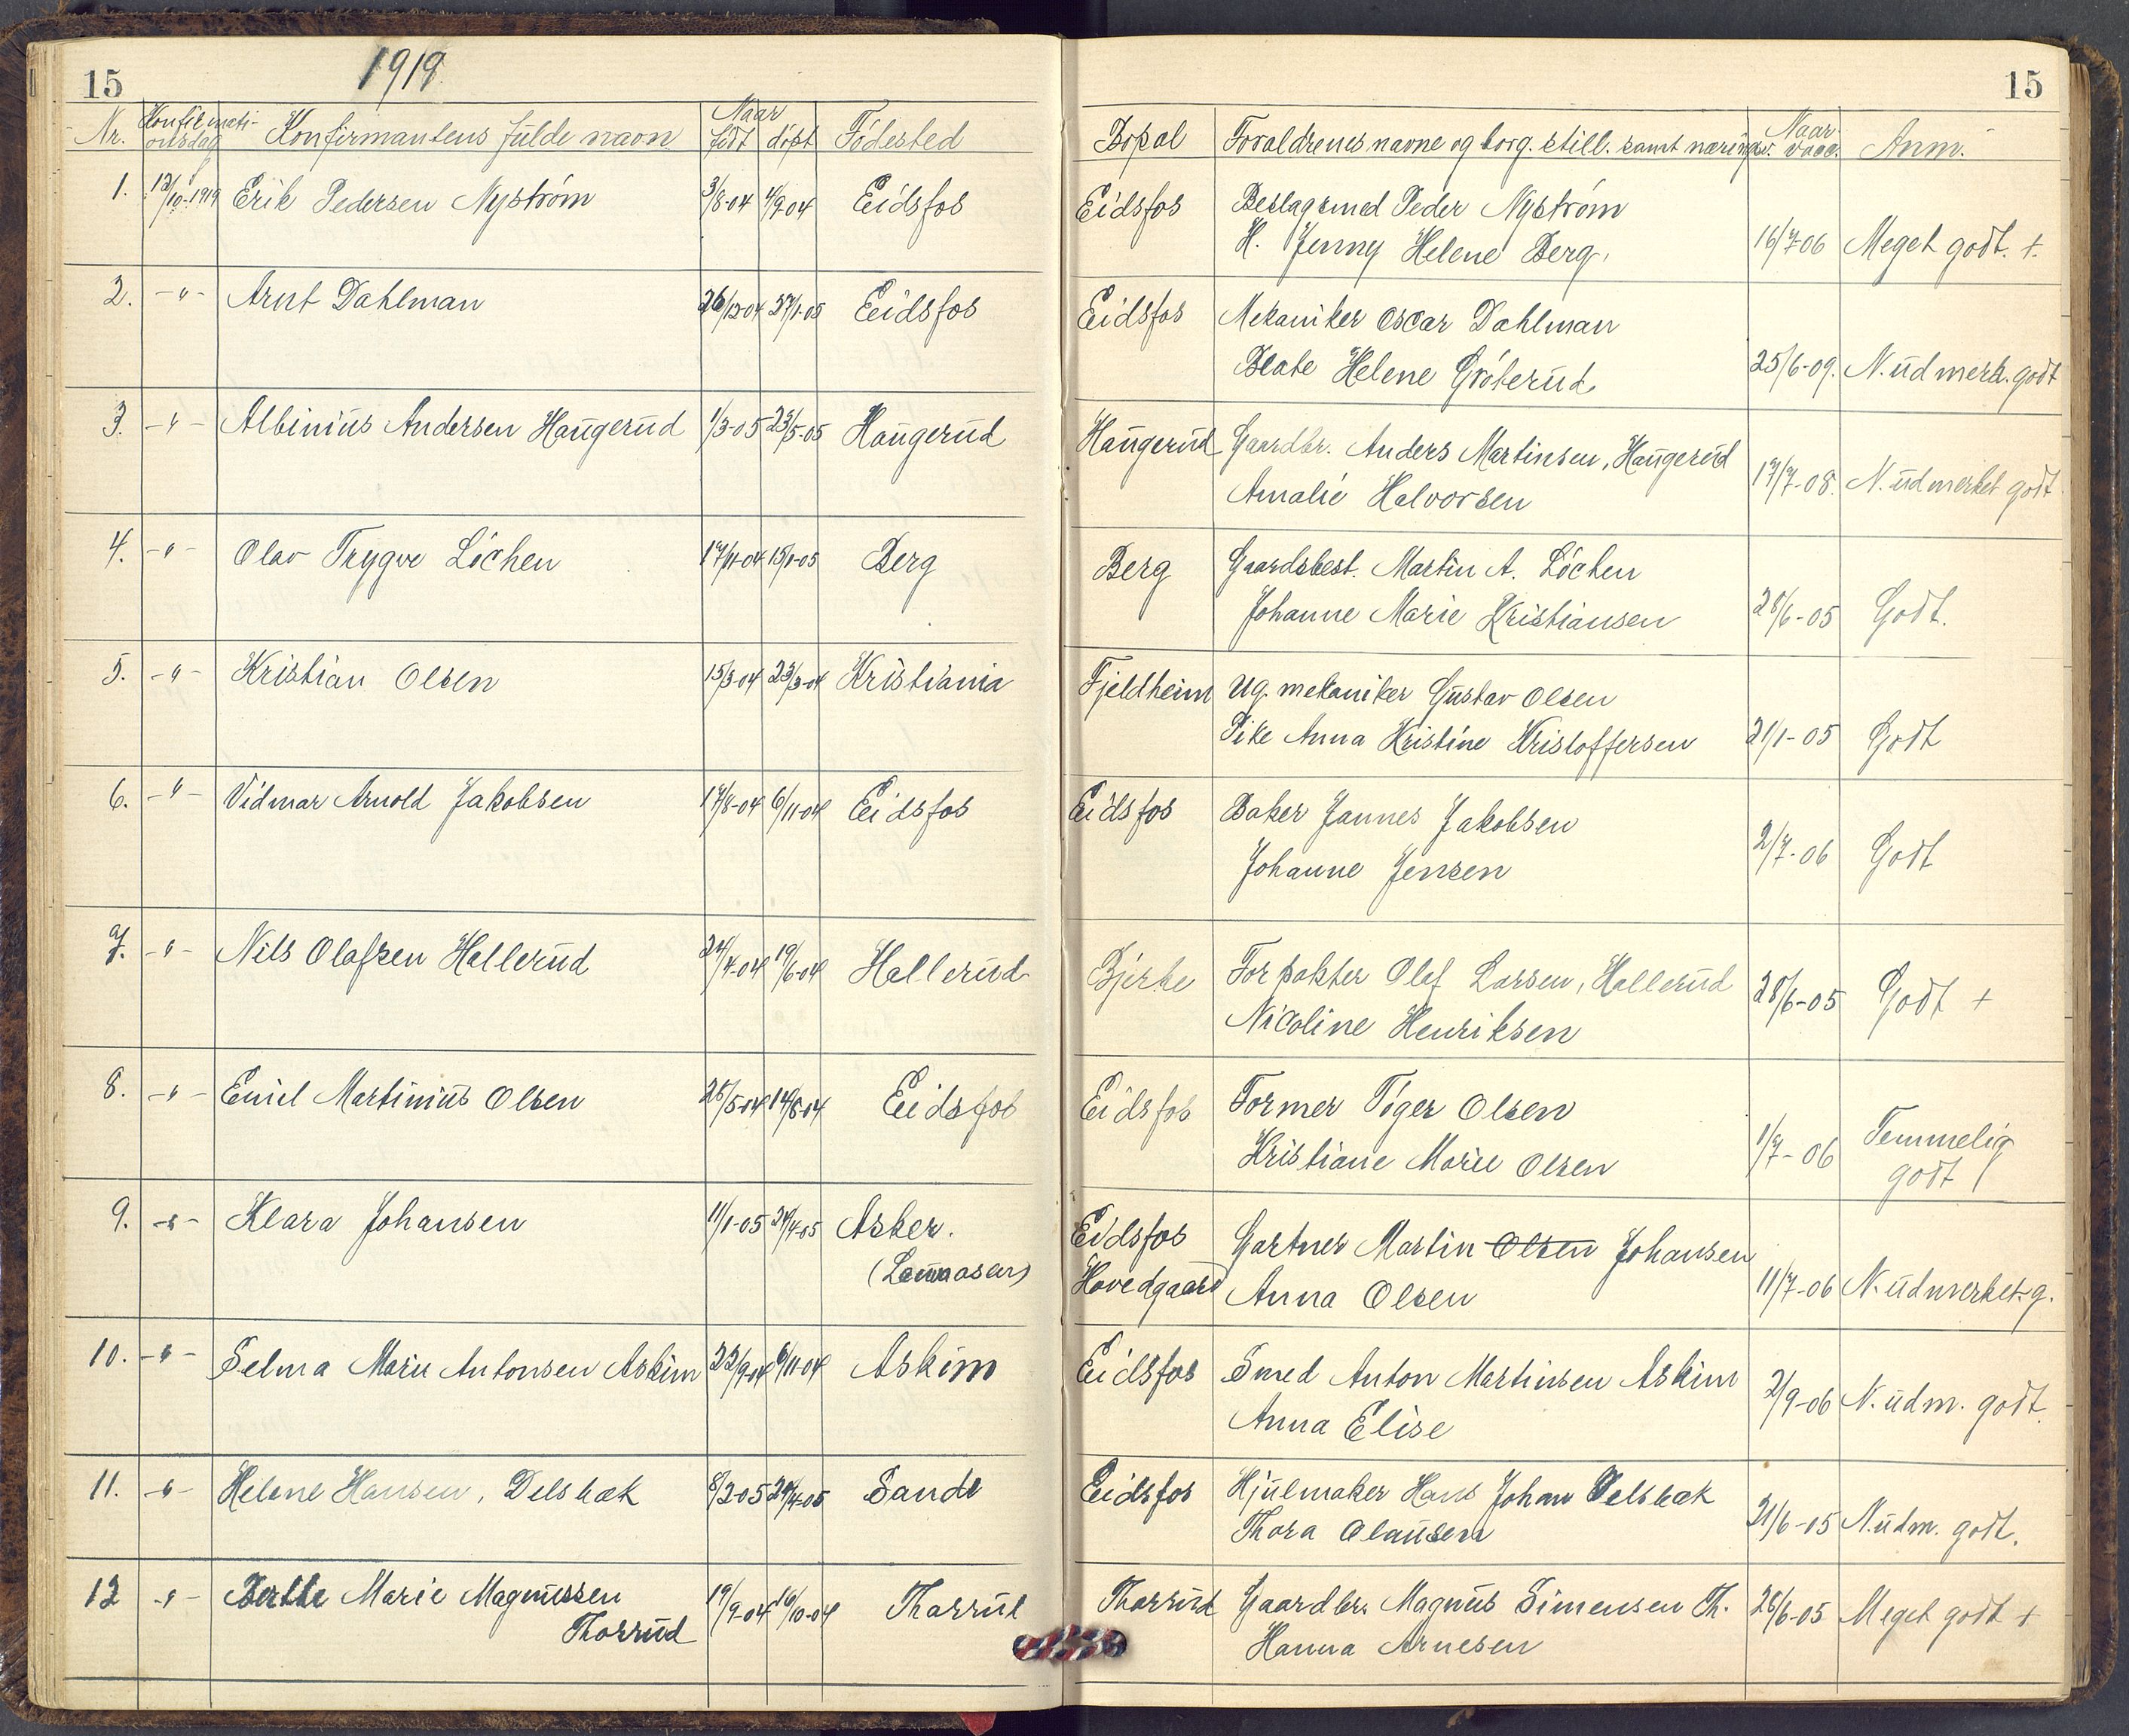 15
1919
15
Nr. Konfirmati- onsdag Konfirmantens fulde navn Naar født døpt Fødested
Bopæl Forældrenes navne og borg. still. samt næringsv. Naar vacc. Anm.
1. 12/10-1919 Erik Pedersen Nyström 3/8-04 4/9-04 Eidsfos
Eidsfos Beslagsmed Peder Nyström
H. Jenny Helene Berg. 16/7-06 Meget godt. +
2. -"- Arnt Dahlman 26/12-04 27/1-05 Eidsfos
Eidsfos Mekaniker Oscar Dahlman
Beate Helene Gróterud 25/6-09. N. udmerk. godt
3. -"- Albinius Andersen Haugerud 1/3-05 23/5-05 Haugerud
Haugerud Gaardbr. Anders Martinsen, Haugerud
Amalie Halvorsen 17/7-08. N. udmerket godt.
4. -"- Olav Trygve Lóchen 17/11-04 15/1-05 Berg
Berg Gaardsbest. Martin A. Lóchen
Johanne Marie Kristiansen 28/6-05 Godt.
5. -"- Kristian Olsen 15/3-04 23/3-04 Kristiania
Fjeldheim Ug. mekaniker Gustav Olsen
Pike Anna Kristine Kristoffersen 21/1-05 Godt
6. -"- Vidmar Arnold Jakobsen 17/8-04 6/11-04 Eidsfos
Eidsfos Baker Jannes Jakobsen
Johanne Jensen 2/7-06 Godt
7. -"- Nils Olafsen Hallerud 24/4-04 19/6-04 Hallerud
Bjerke Forpakter Olaf Larsen, Hallerud
Nicoline Henriksen 28/6-05 Godt +
8. -"- Emil Martinius Olsen 28/5-04 14/8-04 Eidsfos
Eidsfos Former Tóger Olsen
Kristiane Marie Olsen 1/7-06 Temmelig
godt
9. -"- Klara Johansen 11/1-05 24/4-05 Asker.
(Lennaasen)
Eidsfos Gartner Martin Olsen Johansen
Hovedgaard Anna Olsen 11/7-06 N. udmerket. g.
10. -"- Selma Marie Antonsen Askim 22/9-04 6/11-04 Askim
Eidsfos Smed Anton Martinsen Askim
Anna Elise 2/9-06 N. udm. godt
11. -"- Helene Hansen, Delsbæk 8/2-05 24/4-05 Sande
Eidsfos Hjulmaker Hans Johan Delsbæk
Thora Olausen 21/6-05 N. udm. godt.
12 -"- Berthe Marie Magnussen
Thorrud 19/9-04 16/10-04 Thorrud
Thorrud Gaardbr. Magnus Simensen Th.
Hanna Arnesen 28/6-05 Meget godt +